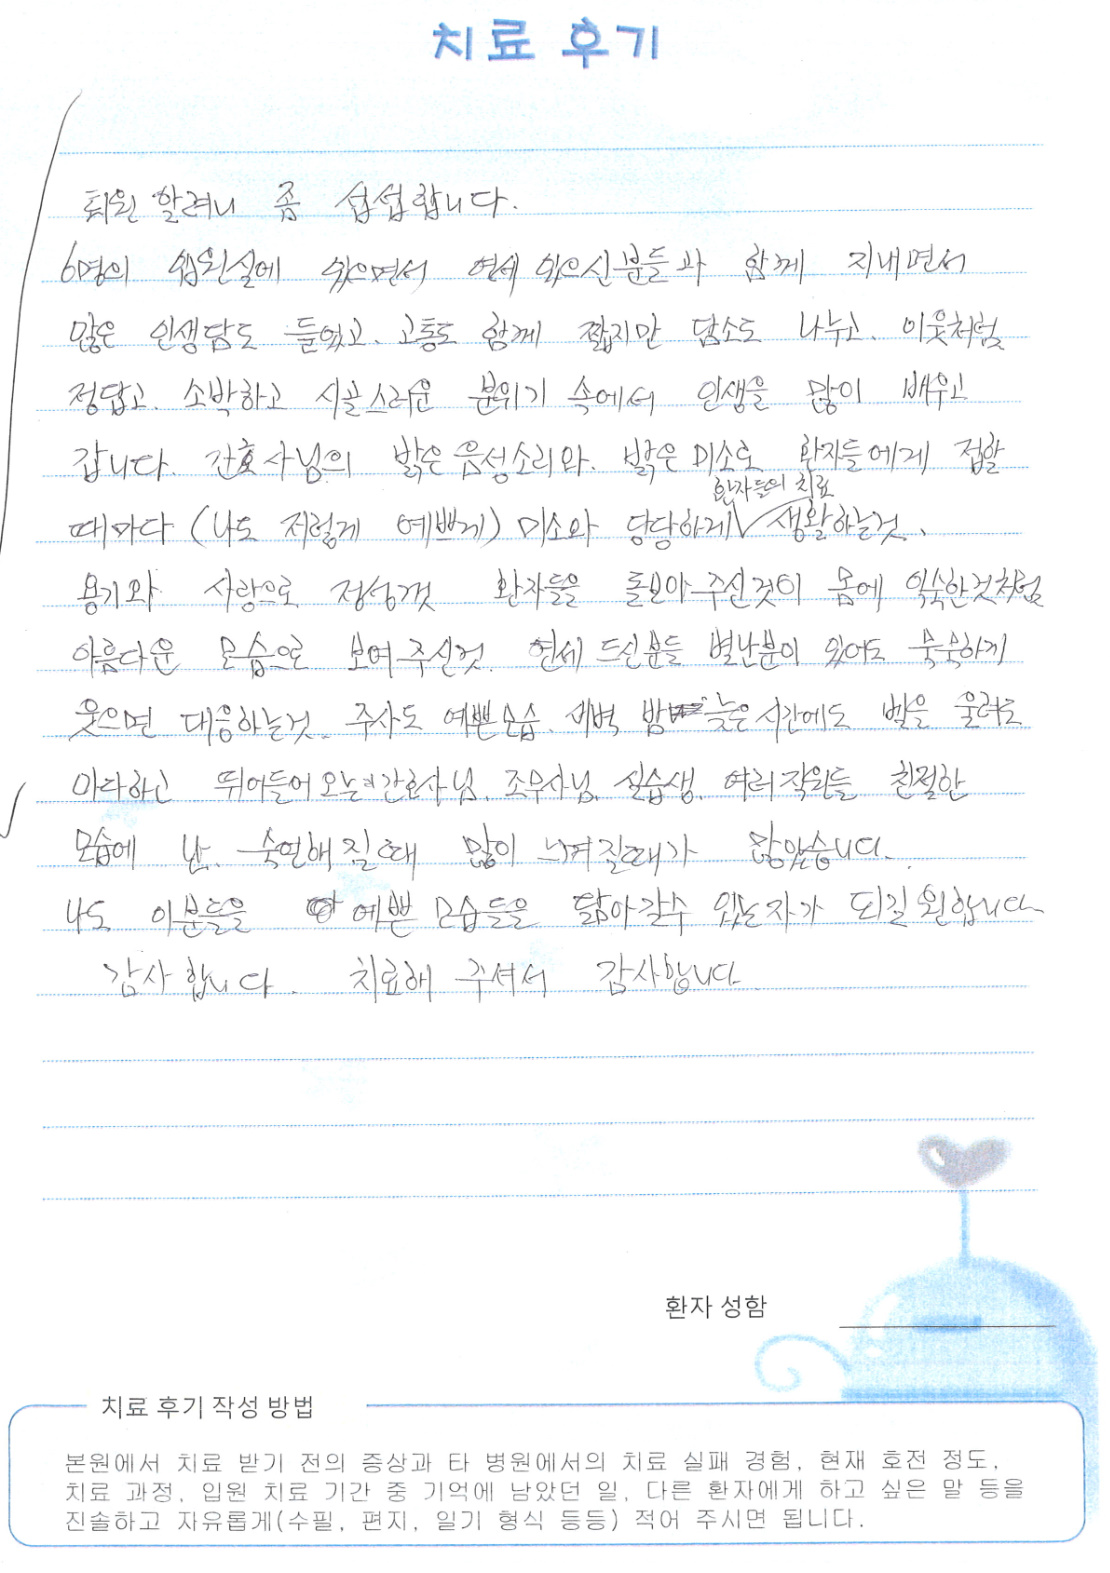 치료 후기
퇴원 할려니 좀 섭섭합니다.
6명의 입원실에 있으면서 연세 있으신분들과 함께 지내면서
많은 인생담도 들었고. 고통도 함께 짧지만 담소도 나누고. 이웃처럼
정답고. 소박하고 시골스러운 분위기 속에서 인생을 많이 배우고
갑니다. 간호사님의 밝은 음성소리와. 밝은 미소로 환자들에게 접할
환자들의 치료
때마다 (나도 저렇게 예쁘게) 미소와 당당하게 생활하는것.
용기와 사랑으로 정성껏 환자들을 돌보아 주신것이 몸에 익숙한것처럼
아름다운 모습으로 보여주신것. 연세 드신분들 별난분이 있어도 묵묵하게
웃으면 대응하는것. 주사도 예쁜모습. 새벽 밤 늦은시간에도 벨을 울려도
마다하고 뛰어들어오는 간호사님. 조무사님. 실습생. 여러직원들 친절한
모습에 난. 숙연해질때 많이 느껴질때가 많았습니다.
나도 이분들을 예쁜 모습들을 닮아갈수 있는자가 되길 원합니다
감사합니다. 치료해 주셔서 감사합니다.
환자 성함
치료 후기 작성 방법
본원에서 치료 받기 전의 증상과 타 병원에서의 치료 실패 경험, 현재 호전 정도,
치료 과정, 입원 치료 기간 중 기억에 남았던 일, 다른 환자에게 하고 싶은 말 등을
진솔하고 자유롭게(수필, 편지, 일기 형식 등등) 적어 주시면 됩니다.